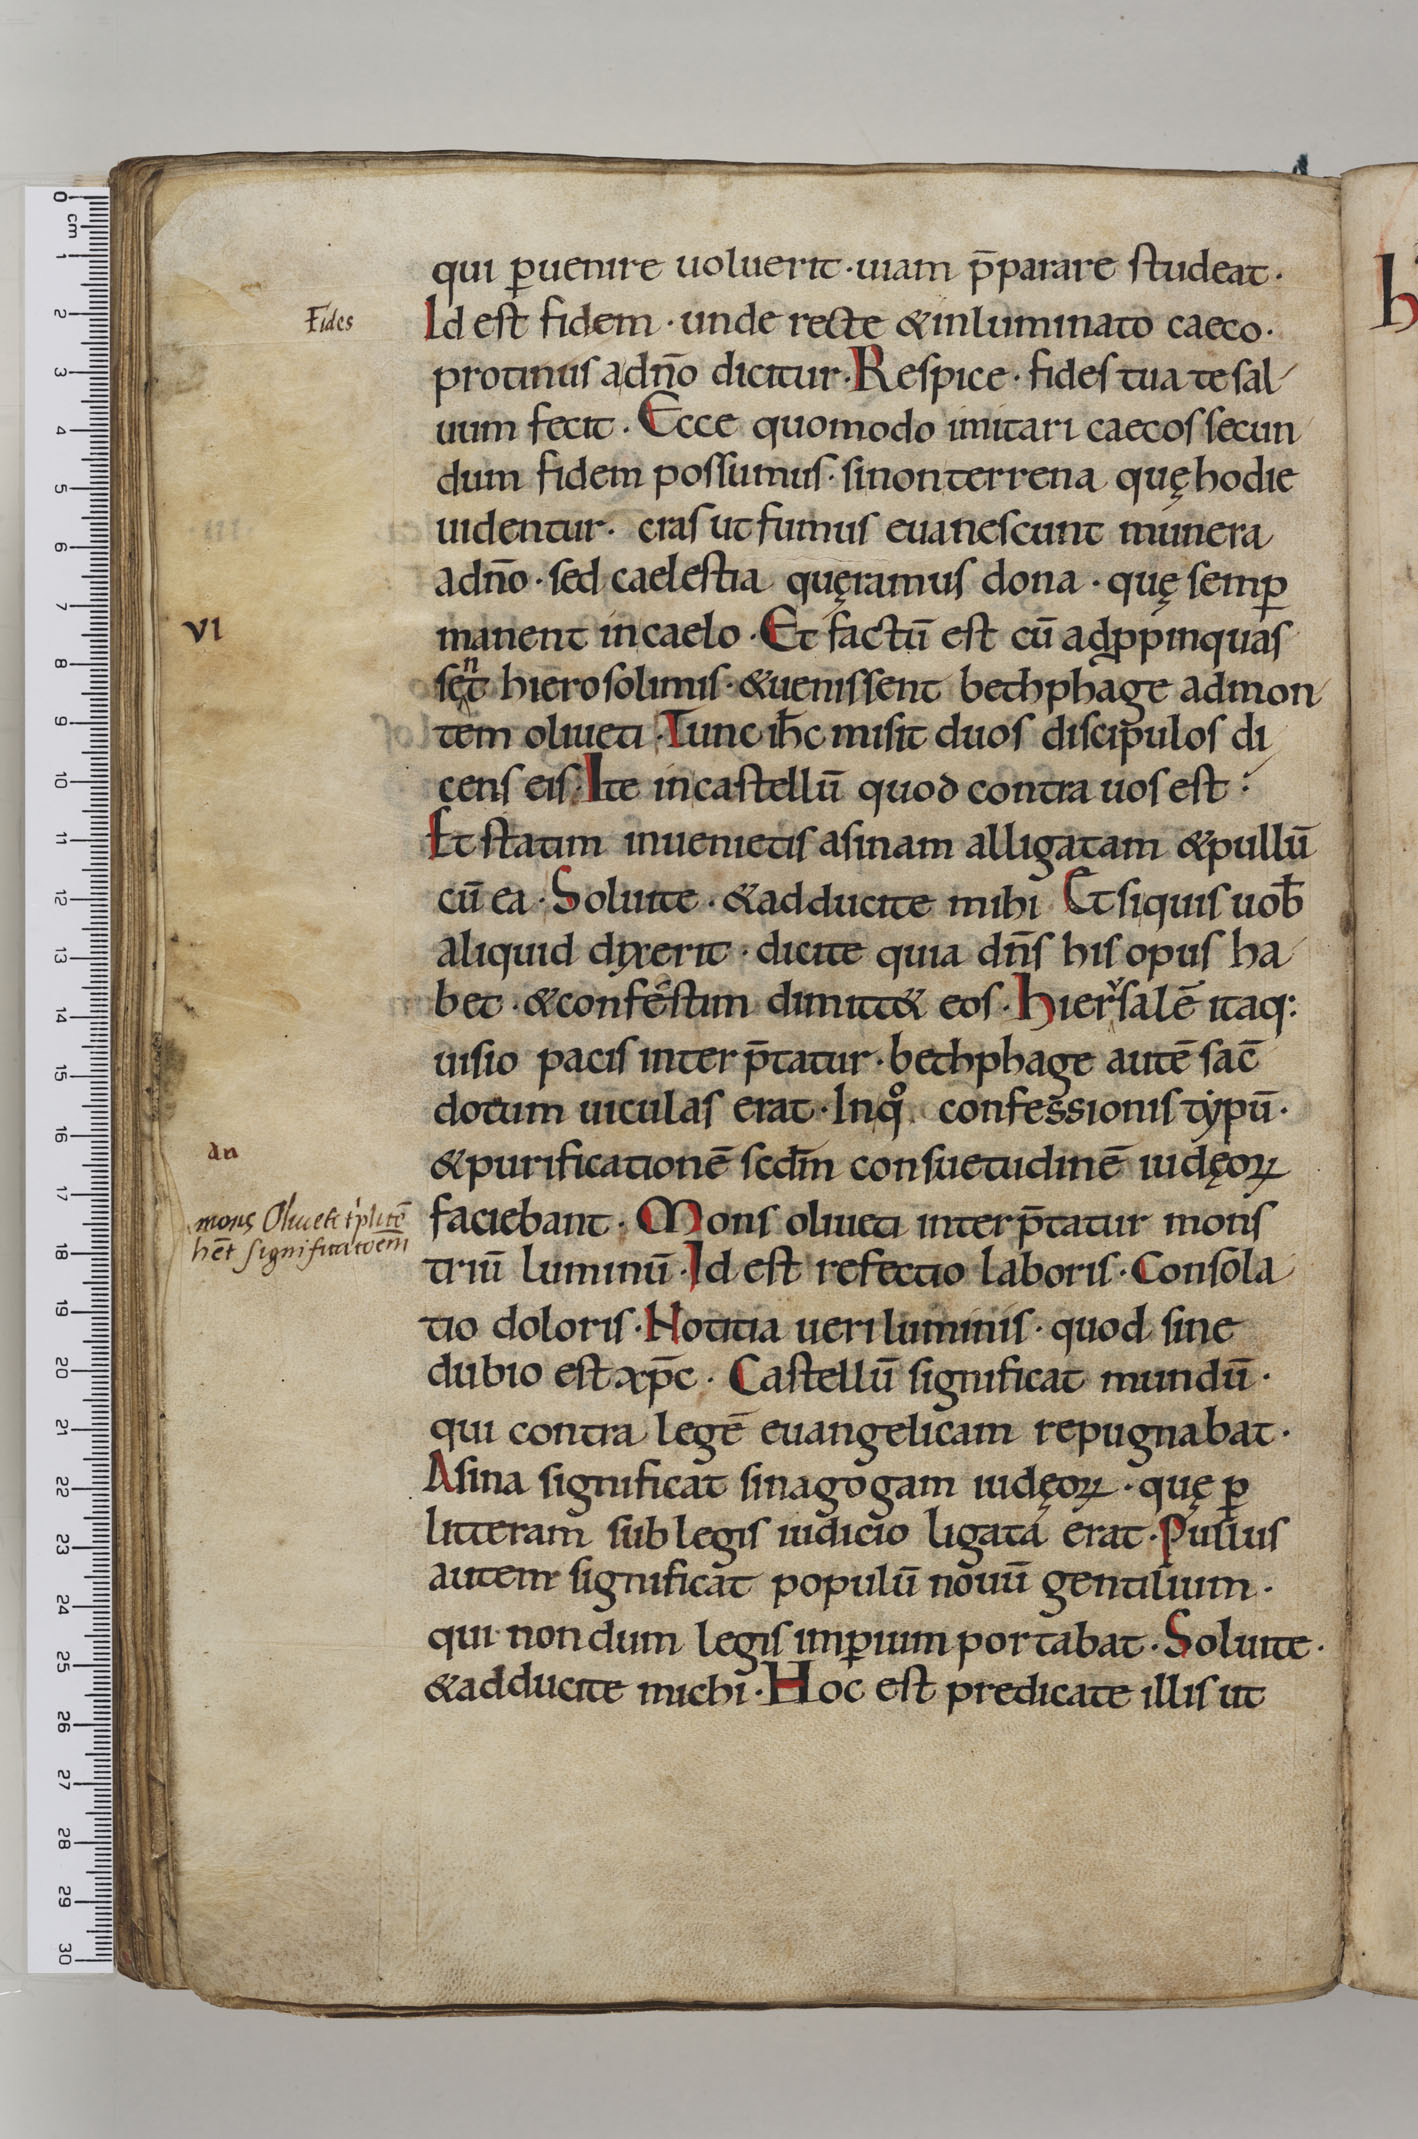 qui ꝑuenire uoluerit · uiam p̄parare studeat ·
Fides
Id est fidem · unde recte & inluminato caeco ·
protinus adño dicitur · Respice · fides tua te sal
uum fecit · Ecce quomodo imitari caecos secun
dum fidem possumus · si non terrena quę hodie
uidentur · cras ut fumus euanescunt munera
adño · sed caelestia quęramus dona · quę semꝑ
VI
manent in caelo · Et factū est cū adꝓpinquas
sęnt hierosolimis · & uenissent bethphage ad mon
tem oliueti · Tunc ih̄c misit duos discipulos di
cens eis · Ite in castellū quod contra uos est ·
Et statim inuenietis asinam alligatam & pullū
cū ea · Soluite · & adducite mihi Et siquis uob̄
aliquid dixerit · dicite quia dn̄s his opus ha
bet · & confestim dimitt& eos · Hiersalē itaq:
uisio pacis interp̄tatur · bethphage autē sac̄
dotum uiculas erat · Inqͦ confessionis typū ·
an
& purificationē scdm̄ consuetudinē iudęoꝝ
mons Oliueti t'plicē
faciebant · Mons oliueti interp̄tatur mons
hēt significatioēm
triū luminū · Id est refectio laboris · Consola
tio doloris · Notitia ueri luminis · quod sine
dubio est xp̄c · Castellū significat mundū ·
qui contra legē euangelicam repugnabat ·
Asina significat sinagogam iudęoꝝ · quę ꝑ
litteram sub legis iudicio ligata erat · Pullus
autem significat populū nouū gentilium ·
qui nondum legis imꝑium portabat · Soluite ·
& adducite michi · Hoc est predicate illis ut
h